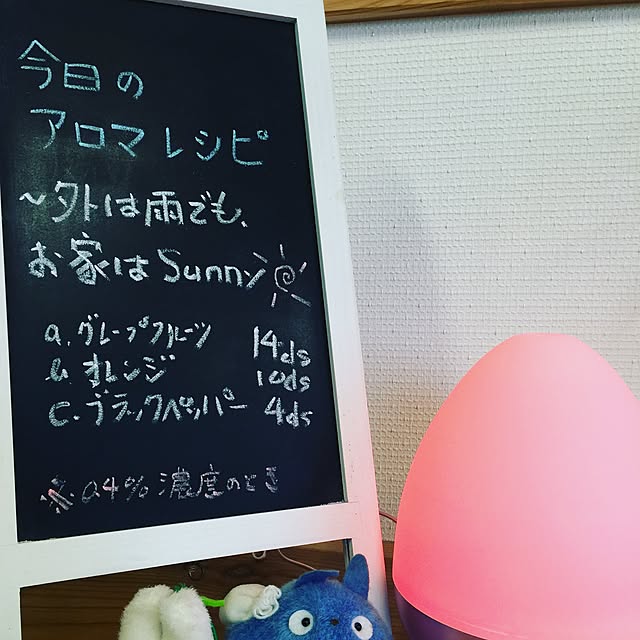 今日の
アロマレシピ
~外は雨でも、
お家はSunny
a. グレープフルーツ 14ds
b. オレンジ 10ds
c. ブラックペッパー 4ds
※ 0.4% 濃度のとき